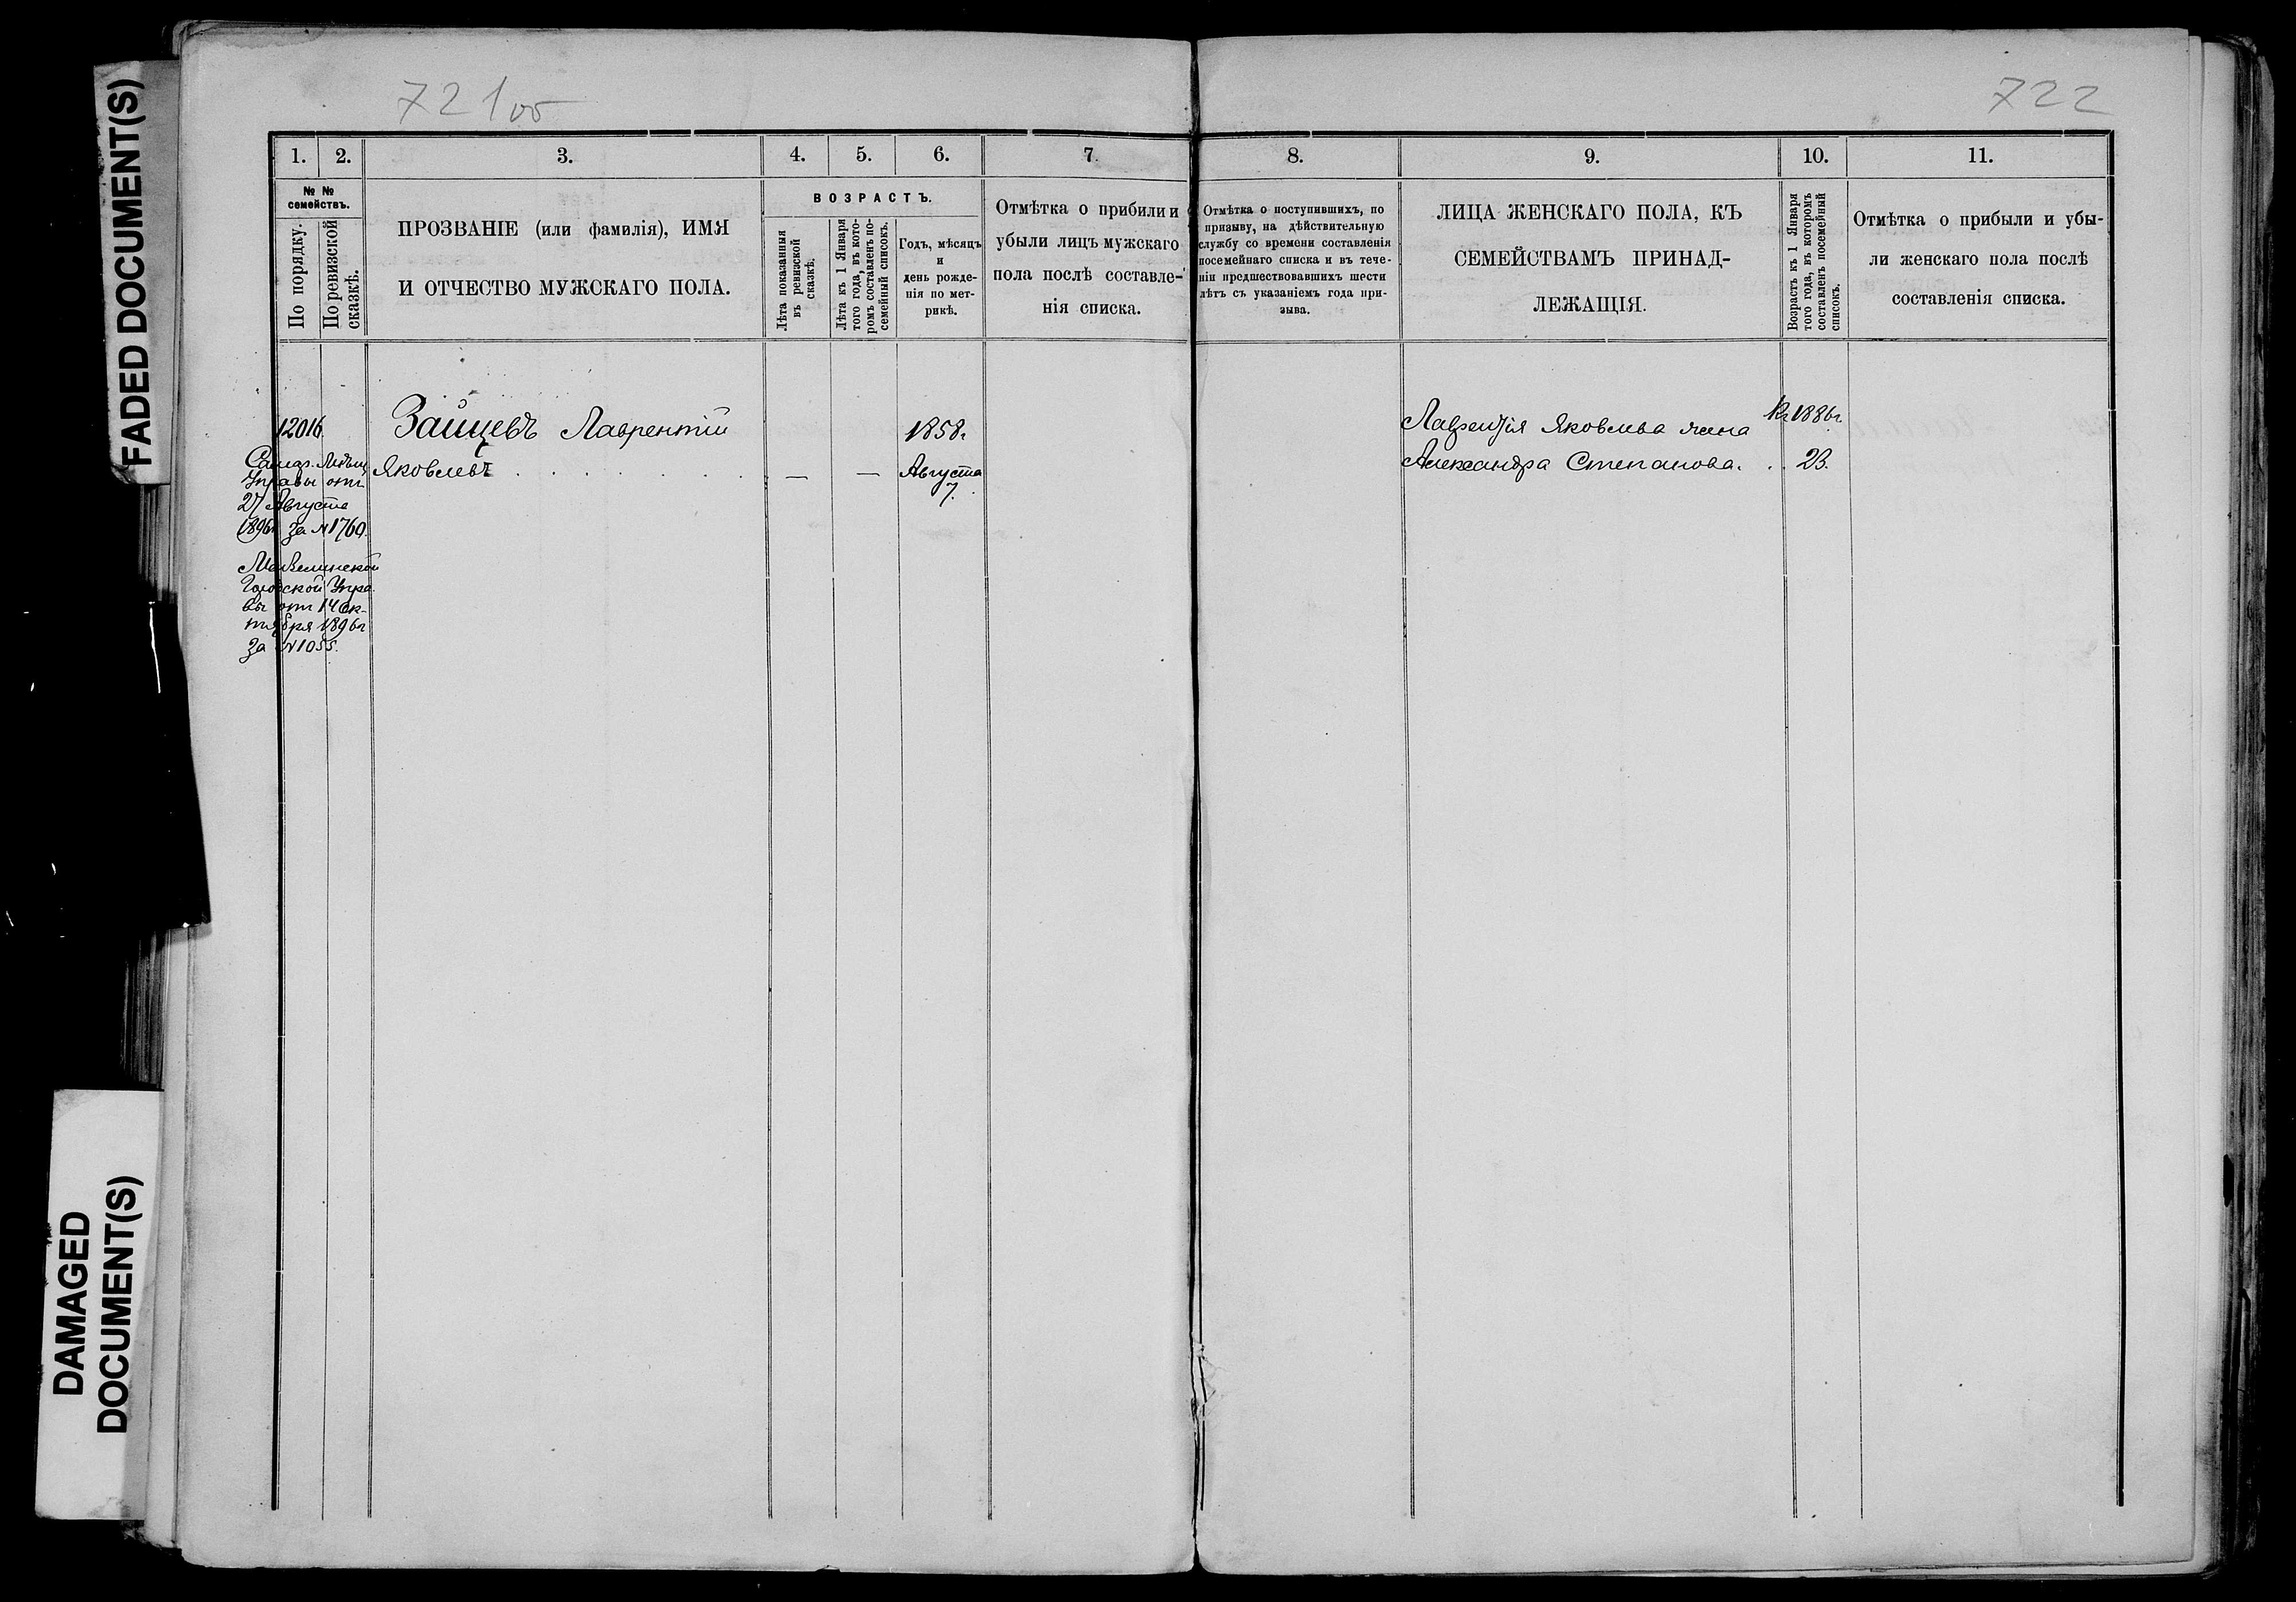 FADED DOCUMENT(S)
DAMAGED
DOCUMENT(S)
721об
722
1.
2.
3.
4.
5.
6.
7.
8.
9.
10.
11.
№ №
семействъ.
По порядку.
По ревизской
сказкѣ.
ПРОЗВАНІЕ (или фамилія), ИМЯ
И ОТЧЕСТВО МУЖСКАГО ПОЛА.
ВОЗРАСТЪ.
Лѣта показанныя
въ ревизской
сказкѣ.
Лѣта къ 1 Января
того года, въ кото-
ромъ составленъ по-
семейный списокъ.
Годъ, мѣсяцъ
и
день рожде-
нія по мет-
рикѣ.
Отмѣтка о прибили и
убыли лицъ мужскаго
пола послѣ составле-
нія списка.
Отмѣтка о поступившихъ, по
призыву, на дѣйствительную
службу со времени составленія
посемейнаго списка и въ тече-
ніи предшествовавшихъ шести
лѣтъ съ указаніемъ года при-
зыва.
ЛИЦА ЖЕНСКАГО ПОЛА, КЪ
СЕМЕЙСТВАМЪ ПРИНАД-
ЛЕЖАЩІЯ.
Возрастъ къ 1 Января
того года, въ которомъ
составленъ посемейный
списокъ.
Отмѣтка о прибыли и убы-
ли женскаго пола послѣ
составленія списка.
12016.
Зайцевъ Лаврентій
Яковлевъ . . . . . .
— —
1858г.
Августа
7.
Самар. Мѣщ.
Управы отъ
27 Августа
1896г за №1760.
Городской Упра-
вы отъ 14 Ок-
тября 1896г
за №1055.
Лаврентія Яковлева жена
Александра Степанова. . .
1886г.
23.